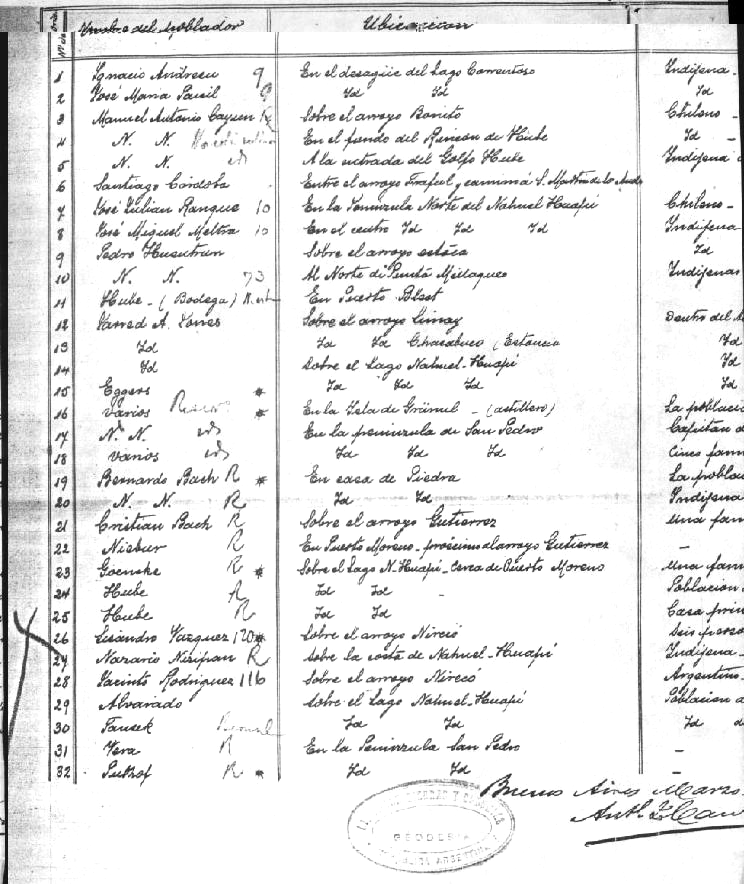 Nº de Nombre del poblador Ubicacion
1 Ignacio Andreeu 9 En el desagüe del Lago Correntoso Indígena -
2 José Maria Paisil 9 Id Id Id
3 Manuel Antonio Cayun Sobre el arroyo Bonito Chileno -
4 N. N. En el fundo del Rincon de Hube Id -
5 N. N. id A la entrada del Golfo Hube Indígena
6 Santiago Córdoba Entre el arroyo Trafeul y camino á S. Martin de los Andes
7 José Julian Ranque 10 En la Peninzula Norte del Nahuel Huapí Chileno -
8 José Miguel Meltra 10 En el centro Id Id Id Indígena
9 Pedro Huentrun Sobre el arroyo estáca Id
10 N. N. 73 Al Norte de Punta Millaqueo Indígenas
11 Hube - (Bodega) En Puerto Blest
12 Jarred A. Jones Sobre el arroyo Limay Dentro del
13 Id Id Id Chacabuco (Estancia Id
14 Id Sobre el Lago Nahuel-Huapí Id
15 Eggers * Id Id Id Id
16 varios * En la Isla de Grämul - (astillero) La poblacio
17 N. N. id En la peninzula de San Pedro Capitan d
18 varios id Id Id Id Cinco fam
19 Bernardo Bach R * En casa de Piedra La poblac
20 N. N. R Id Id Indígena
21 Cristian Bach R Sobre el arroyo Gutierrez Una fam
22 Niebur R En Puerto Moreno - próximo al arroyo Gutierrez -
23 Goenske R * Sobre el Lago N. Huapí - Cerca de Puerto Moreno Una fam
24 Hube R Id Id - Poblacion
25 Hube R Id Id Casa prin
26 Lisandro Vazquez 120 * Sobre el arroyo Ñirecó Seis perso
27 Nazario Nirifan R Sobre la costa de Nahuel-Huapí Indígena -
28 Jacinto Rodriguez 116 Sobre el arroyo Ñirecó Argentino -
29 Alvarado Sobre el Lago Nahuel-Huapí Poblacion d
30 Tausek Id Id Id d
31 Vera R En la Peninzula San Pedro -
32 R * Id Id -
Buenos Aires Marzo
GEODESIA